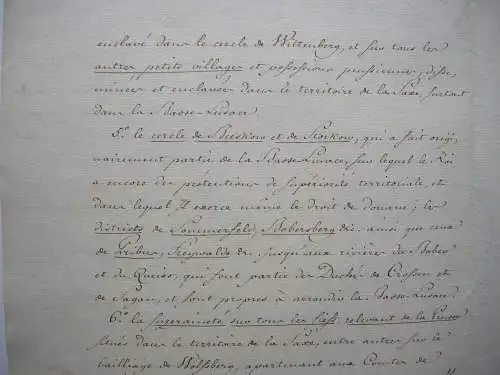 enclavé dans le cercle de Wittenberg, et sur tous les
autres petits villages et possessions prussiennes, dissé,
minées et enclavées dans le territoire de la Saxe, surtout
dans la Basse-Lusace.
5.° le cercle de Beeskow et de Storkow, qui a fait origi,
nairement partie de la Basse-Lusace, sur lequel le Roi
a encore des prétentions de supériorité territoriale, et
dans lequel Il exerce même le droit de douane; les
districts de Sommerfeld, Bobersberg &c. ainsi que ceux
de Priebus, Freywalde &c. jusqu'aux rivières du Bober
et du Queiss, qui font partie des Duchés de Crossen et
de Sagan, et sont propres à arrondir la Basse-Lusace.
6.° la suzeraineté sur tous les fiefs relevant de la Prusse
situés dans le territoire de la Saxe, entre autres sur le
bailliage de Wolfsberg, appartenant aux Comtes de